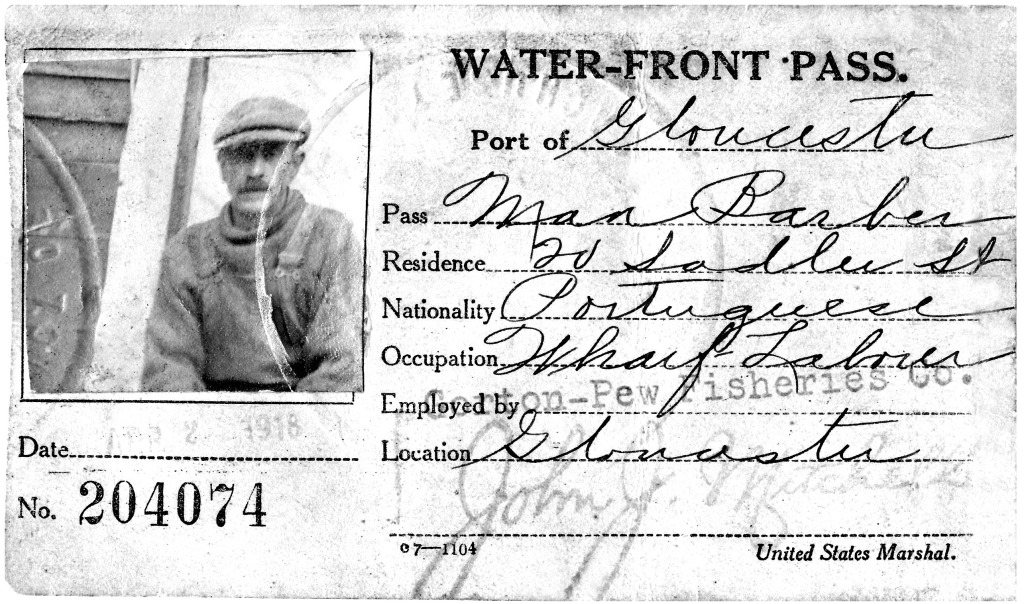 WATER-FRONT PASS.
Port of Gloucester
Pass Man Barber
Residence 20 Sadler St
Nationality Portuguese
Occupation Wharf Laborer
Employed by Gorton-Pew Fisheries Co.
Location Gloucester
Date 2 1918
No. 204074
John J.
c7—1104
United States Marshal.